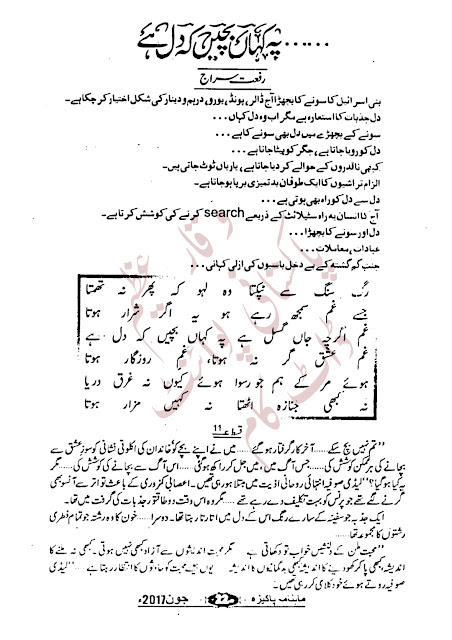 ...... پہ کہاں بچیں کہ دل ہے
رفعت سراج
بنی اسرائیل کا سونے کا بچھڑا آج ڈالر، پونڈ، یورو، درہم و دینار کی شکل اختیار کر چکا ہے۔
دل جذبات کا استعارہ ہے مگر اب وہ دل کہاں...
سونے کے بچھڑے میں دل بھی سونے کا ہے...
دل کو رویا جاتا ہے، جگر کو پیٹا جاتا ہے...
کبھی ناقدروں کے حوالے کر دیا جاتا ہے، یاریاں ٹوٹ جاتی ہیں۔
الزام تراشیوں کا ایک طوفان بدتمیزی برپا ہو جاتا ہے۔
دل سے دل کو راہ بھی ہوتی ہے...
آج کا انسان یہ راہ سیٹلائٹ کے ذریعے search کرنے کی کوشش کرتا ہے۔
دل اور سونے کا بچھڑا...
عبادات، معاملات...
جنت گم گشتہ کے بے دخل باسیوں کی ازلی کہانی...
رگ سنگ سے ٹپکتا وہ لہو کہ پھر نہ تھمتا
جسے غم سمجھ رہے ہو یہ اگر شرار ہوتا
غم اگرچہ جاں گسل ہے پہ کہاں بچیں کہ دل ہے
غم عشق گر نہ ہوتا، غم روزگار ہوتا
ہوئے مر کے ہم جو رسوا ہوئے کیوں نہ غرق دریا
نہ کبھی جنازہ اٹھتا نہ کہیں مزار ہوتا
قسط 11
”تم نہیں بچ سکے..... آخر کار گرفتار ہو گئے..... میں نے اپنے بچے کو خاندان کی اکلوتی نشانی کو سوز عشق سے
بچانے کی ہر ممکن کوشش کی..... جس آگ میں، میں جل کر راکھ ہوئی..... اس آگ سے بچانے کی کوشش کی..... مگر
یہ کیا ہو گیا؟“ لیڈی صوفیہ انتہائی روحانی اذیت میں مبتلا ہو رہی تھیں۔ اعصابی کمزوری کے باعث تواتر سے آنسو بھی
گرنے لگے تھے جو پرنس کو بہت تکلیف دے رہے تھے..... مگر وہ اس وقت دو طاقتور جذبات کی گرفت میں تھا۔
ایک جذبہ جو سفینہ کے سارے رنگ اس کے دل میں اتارتا رہتا تھا۔ دوسرا..... خون کا وہ رشتہ جو تمام فطری
رشتوں کا مجموعہ تھا۔
”محبت ملن کے دلنشیں خواب تو دکھاتی ہے..... مگر محبت اندیشوں سے آزاد کبھی نہیں ہوتی۔ کبھی نہ ملنے کا
اندیشہ، کبھی پا کر کھو دینے کا اندیشہ، کبھی بدگمانیوں کا اندیشہ..... یوں ہی محبت کو حادثوں کا انتظار رہتا ہے.....“ لیڈی
صوفیہ روتے ہوئے خود کلامی کر رہی تھیں۔
ماہنامہ پاکیزہ جون 2017ء